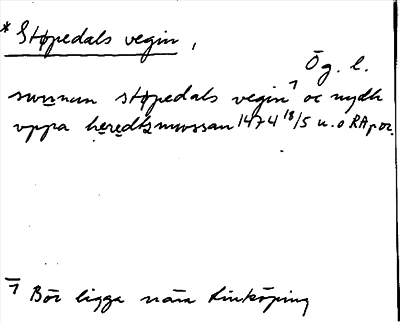 * Støpedals vegin,
Ög. l.
sunnan støpedals vegin ⁊ oc nydh
vppa heredtz mossan 1474 18/5 u. o RA p or.
⁊ Bör ligga nära Linköping